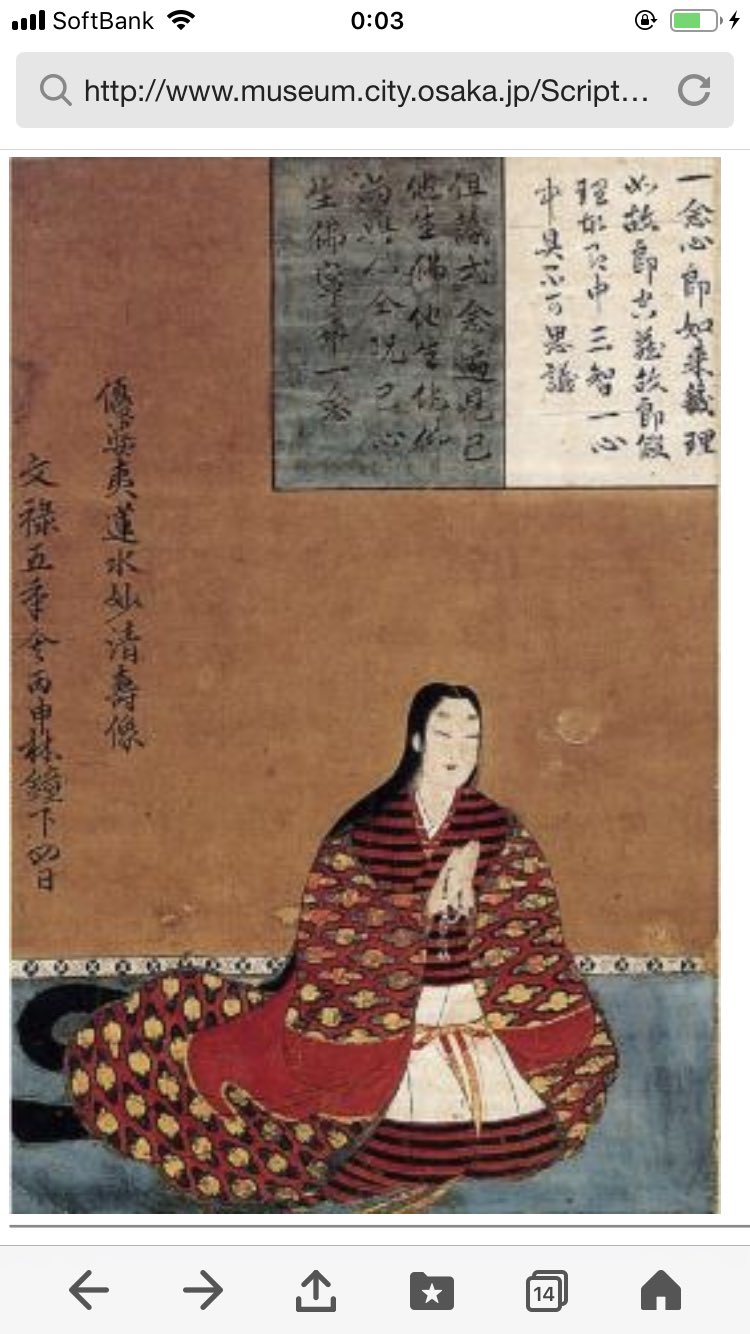 SoftBank 0:03
http://www.museum.city.osaka.jp/Script…
一念心即如来藏理
如故即空藏故即假
理故即中三智一心
中具不可思議
但識弌念遍見己
他生佛他生他佛
尚與心仝況己心
生佛寧乖一念
優婆夷蓮水妙清壽像
文祿五季丙申林鐘下四日
14